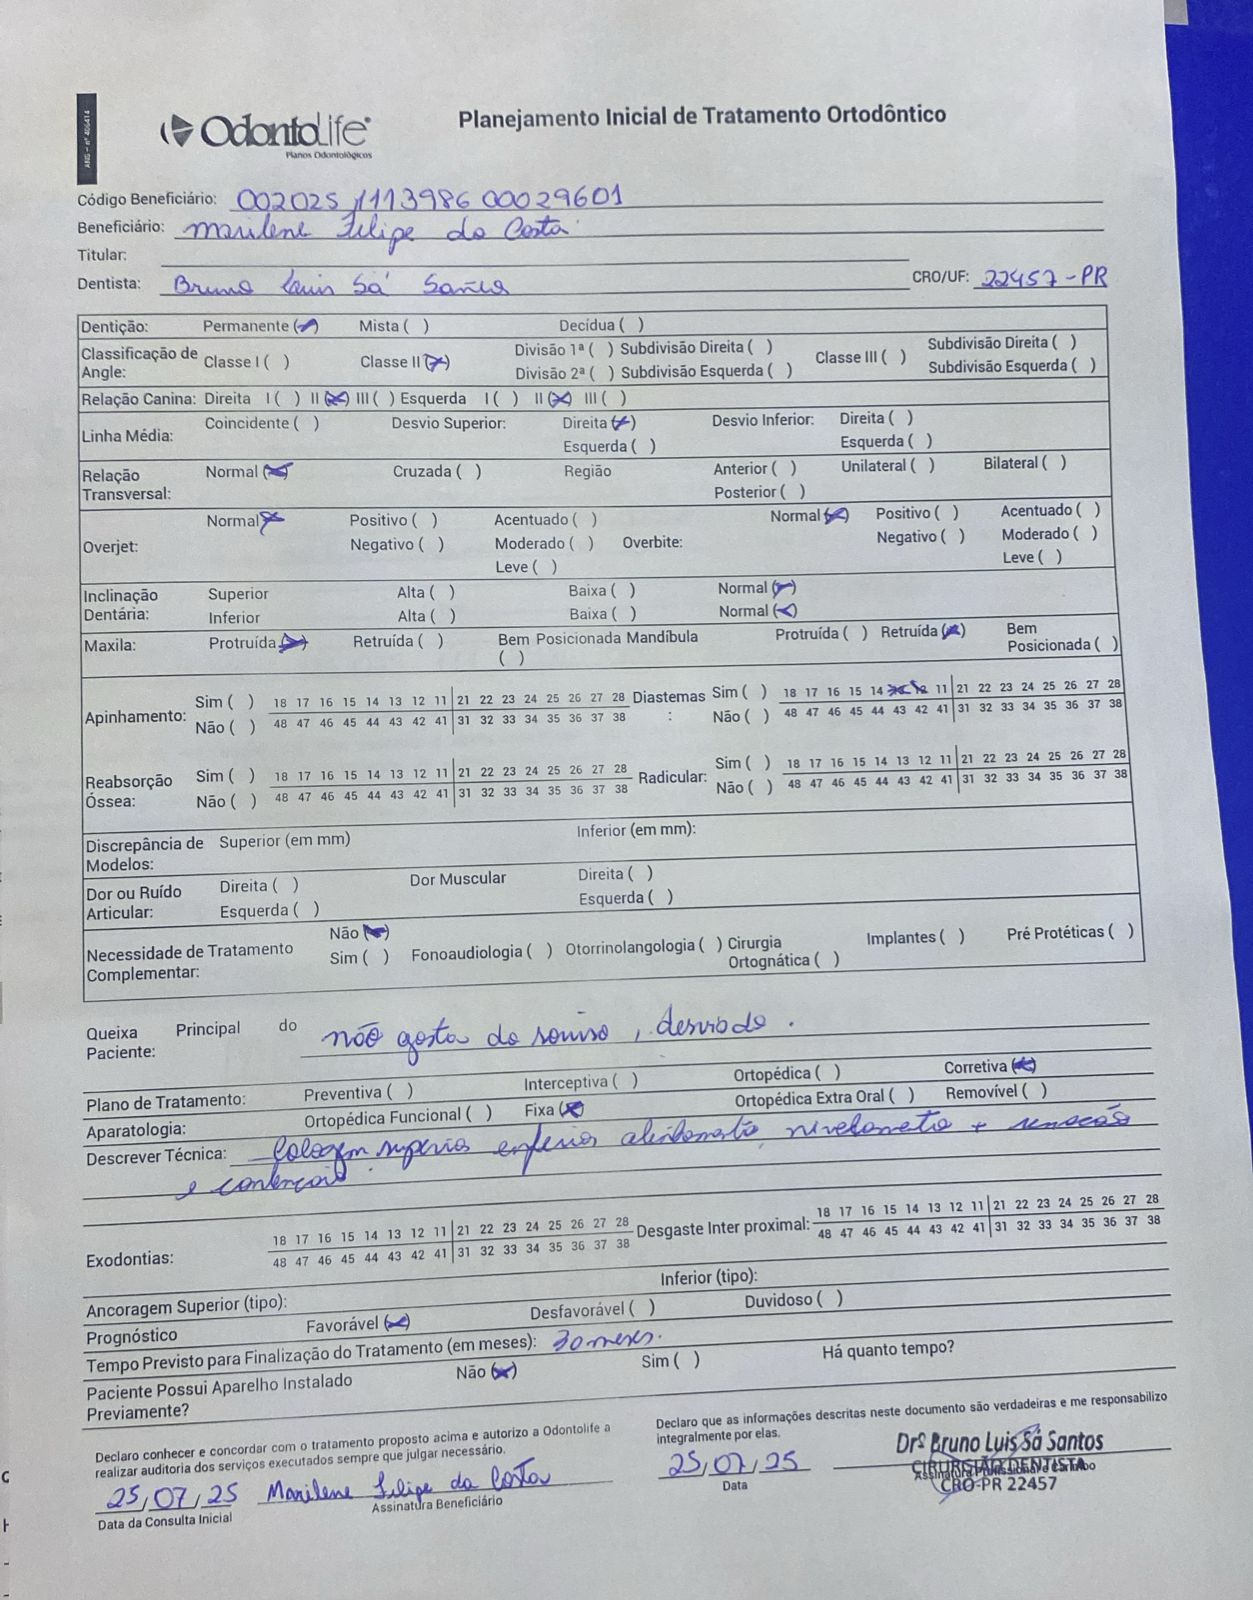 ANS - nº 406414
OdontoLife®
Planos Odontológicos
Planejamento Inicial de Tratamento Ortodôntico
Código Beneficiário: 002025 1113986 00029601
Beneficiário: Marilene Felipe da Costa
Titular:
Dentista: Bruno Luis Sá Santos CRO/UF: 22457-PR
Dentição: Permanente (x) Mista ( ) Decídua ( )
Classificação de Angle: Classe I ( ) Classe II (x) Divisão 1ª ( ) Subdivisão Direita ( ) Divisão 2ª ( ) Subdivisão Esquerda ( ) Classe III ( ) Subdivisão Direita ( ) Subdivisão Esquerda ( )
Relação Canina: Direita I ( ) II (x) III ( ) Esquerda I ( ) II (x) III ( )
Linha Média: Coincidente ( ) Desvio Superior: Direita (x) Esquerda ( ) Desvio Inferior: Direita ( ) Esquerda ( )
Relação Transversal: Normal (x) Cruzada ( ) Região Anterior ( ) Posterior ( ) Unilateral ( ) Bilateral ( )
Overjet: Normal (x) Positivo ( ) Negativo ( ) Acentuado ( ) Moderado ( ) Leve ( ) Overbite: Normal (x) Positivo ( ) Negativo ( ) Acentuado ( ) Moderado ( ) Leve ( )
Inclinação Dentária: Superior Alta ( ) Baixa ( ) Normal (x)
Inferior Alta ( ) Baixa ( ) Normal (x)
Maxila: Protruída (x) Retruída ( ) Bem Posicionada ( ) Mandíbula Protruída ( ) Retruída (x) Bem Posicionada ( )
Apinhamento: Sim ( ) 18 17 16 15 14 13 12 11 21 22 23 24 25 26 27 28 Diastemas: Sim ( ) 18 17 16 15 14 13 12 11 21 22 23 24 25 26 27 28
Não ( ) 48 47 46 45 44 43 42 41 31 32 33 34 35 36 37 38 Não ( ) 48 47 46 45 44 43 42 41 31 32 33 34 35 36 37 38
Reabsorção Óssea: Sim ( ) 18 17 16 15 14 13 12 11 21 22 23 24 25 26 27 28 Radicular: Sim ( ) 18 17 16 15 14 13 12 11 21 22 23 24 25 26 27 28
Não ( ) 48 47 46 45 44 43 42 41 31 32 33 34 35 36 37 38 Não ( ) 48 47 46 45 44 43 42 41 31 32 33 34 35 36 37 38
Discrepância de Modelos: Superior (em mm) Inferior (em mm):
Dor ou Ruído Articular: Direita ( ) Esquerda ( ) Dor Muscular Direita ( ) Esquerda ( )
Necessidade de Tratamento Complementar: Não (x) Sim ( ) Fonoaudiologia ( ) Otorrinolangologia ( ) Cirurgia Ortognática ( ) Implantes ( ) Pré Protéticas ( )
Queixa Principal do Paciente: não gosta do sorriso, desviado.
Plano de Tratamento: Preventiva ( ) Interceptiva ( ) Ortopédica ( ) Corretiva (x)
Aparatologia: Ortopédica Funcional ( ) Fixa (x) Ortopédica Extra Oral ( ) Removível ( )
Descrever Técnica: Colagem superior inferior alinhamento nivelamento + remoção
e contenção.
Exodontias: 18 17 16 15 14 13 12 11 21 22 23 24 25 26 27 28 Desgaste Inter proximal: 18 17 16 15 14 13 12 11 21 22 23 24 25 26 27 28
48 47 46 45 44 43 42 41 31 32 33 34 35 36 37 38 48 47 46 45 44 43 42 41 31 32 33 34 35 36 37 38
Ancoragem Superior (tipo): Inferior (tipo):
Prognóstico Favorável (x) Desfavorável ( ) Duvidoso ( )
Tempo Previsto para Finalização do Tratamento (em meses): 30 meses.
Paciente Possui Aparelho Instalado Previamente? Não (x) Sim ( ) Há quanto tempo?
Declaro conhecer e concordar com o tratamento proposto acima e autorizo a Odontolife a
realizar auditoria dos serviços executados sempre que julgar necessário.
25/07/25 Marilene Felipe da Costa
Data da Consulta Inicial Assinatura Beneficiário
Declaro que as informações descritas neste documento são verdadeiras e me responsabilizo
integralmente por elas.
25/07/25
Data
Drº Bruno Luis Sá Santos
CIRURGIÃO DENTISTA
Assinatura Profissional e Carimbo
CRO-PR 22457